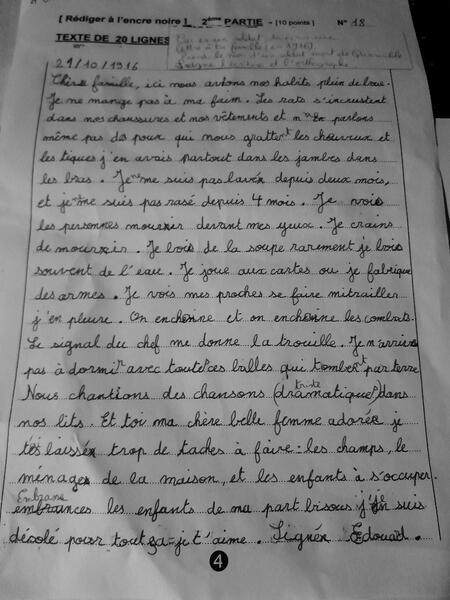 [ Rédiger à l'encre noire ] 2ème PARTIE - [10 points] N° 18
TEXTE DE 20 LIGNES
21/10/1916
Chère famille, ici nous avons nos habits plein de boue.
Je ne mange pas à ma faim. Les rats s'incrustent
dans nos chaussures et nos vêtements et n'en parlons
même pas des poux qui nous grattent les cheveux et
les tiques j'en avais partout dans les jambes dans
les bras. Je ne me suis pas lavé depuis deux mois,
et je ne suis pas rasé depuis 4 mois. Je vois
les personnes mourir devant mes yeux. Je crains
de mourrir. Je bois de la soupe rarement je bois
souvent de l'eau. Je joue aux cartes ou je fabrique
des armes. Je vois mes proches se faire mitrailler
j'en pleure. On enchenne et on enchenne les combats.
Le signal du chef me donne la trouille. Je n'arrive
pas à dormir avec toutes ces balles qui tombent par terre
Nous chantions des chansons (dramatique) triste dans
nos lits. Et toi ma chère belle femme adorée je
t'es laissé trop de taches à faire: les champs, le
ménage de la maison, et les enfants à s'occuper.
Embrasse
les enfants de ma part bisous j'en suis
désolé pour tout ça = je t'aime. Signé Edouard.
4